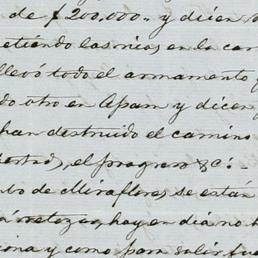 de $200,000.. y dicen
metiendo las narices en la car
llevó todo el armamento
do otro en Apam y dicen
han destruido el camino
bertad, el progreso &c. -
bo de Miraflores, se están
retozo, hoy en dia no h
iona y como para salir fue